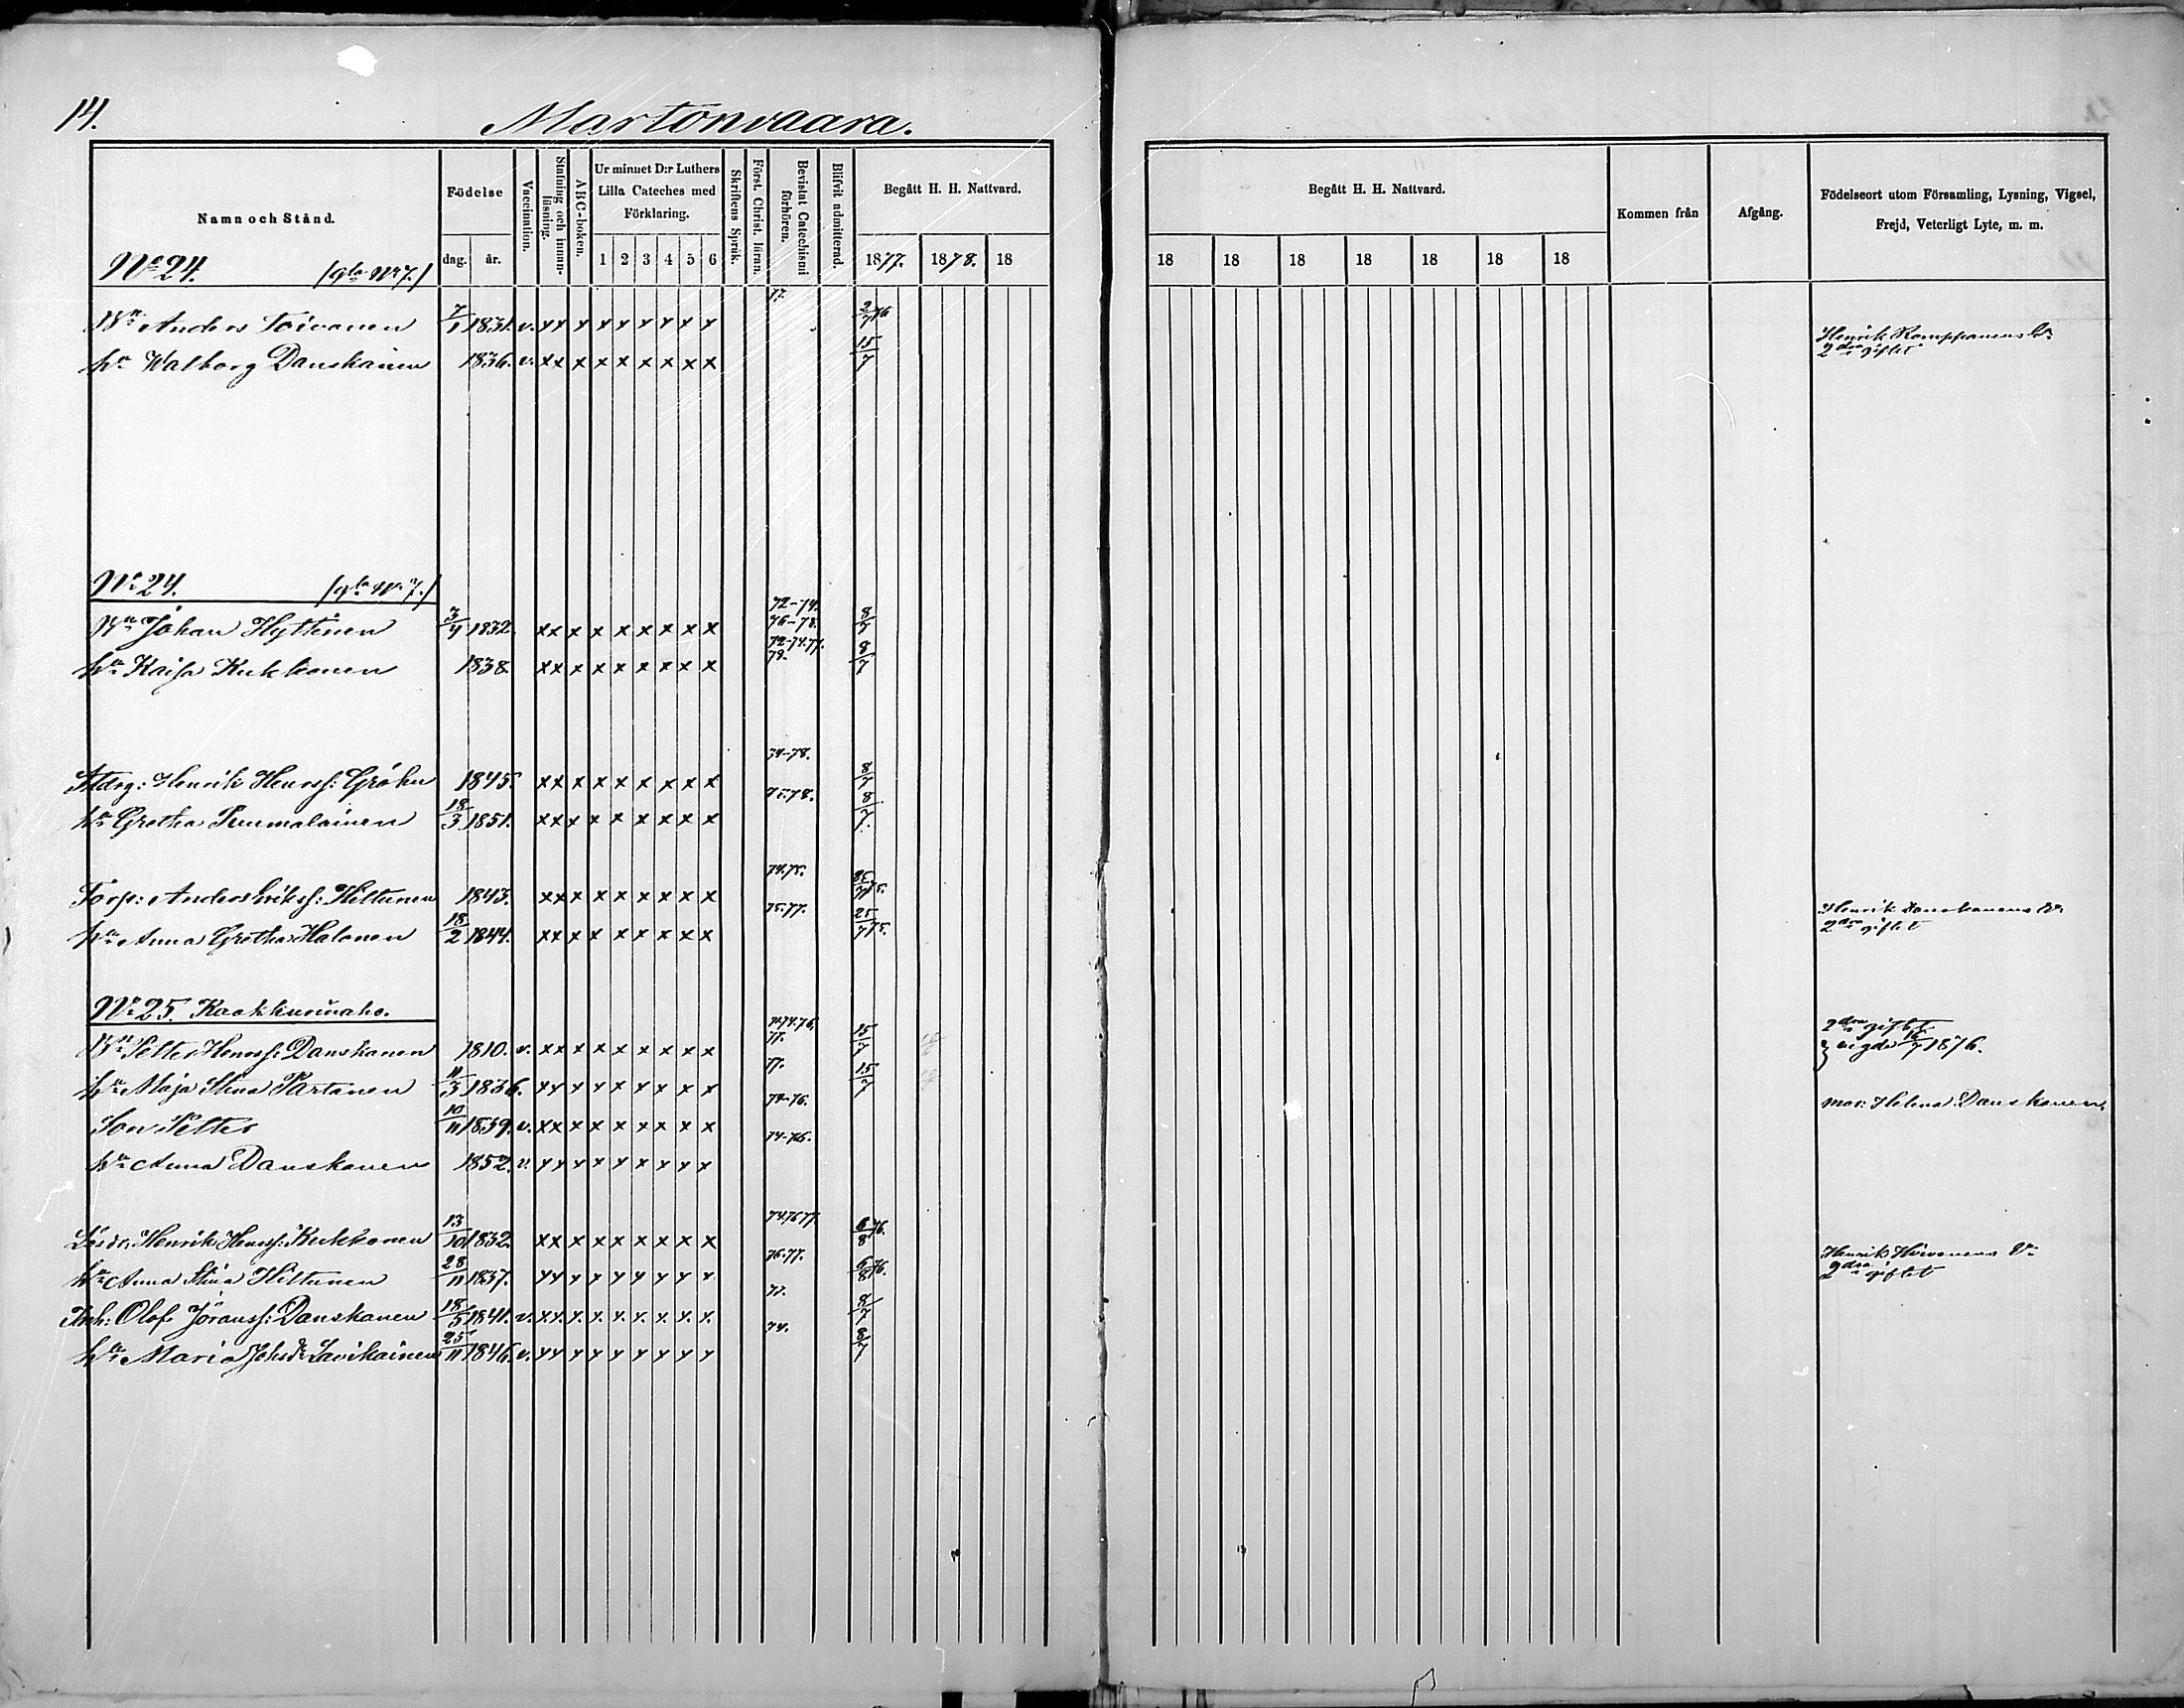 14.
Martonvaara.
Namn och Stånd.
Födelse
dag. år.
Vaccination.
Stafning och innanläsning.
ABC-boken.
Ur minnet D:r Luthers Lilla Cateches med Förklaring.
1 2 3 4 5 6
Skriftens Språk.
Först. Christ. läran.
Bevistat Catechismi förhören.
Blifvit admitterad.
Begått H. H. Nattvard.
1877. 1878. 18
Begått H. H. Nattvard.
18 18 18 18 18 18 18
Kommen från
Afgång.
Födelseort utom Församling, Lysning, Vigsel, Frejd, Veterligt Lyte, m. m.
No 24. /gla No 7./
Bn Anders Toivonen 7/1 1831. v. x x x x x x x x x 77. 2/7 76 Henrik Romppanens Er
hu Walborg Danskainen 1836. v. x x x x x x x x x 15/7 2dra giftet
No 24. /gla No 7./
Bn Johan Hyttinen 3/4 1832 x x x x x x x x x 72-74. 76-78. 8/7
hu Kaisa Kukkonen 1838 x x x x x x x x x 72-74.77. 78. 8/7
Henrik Henrss: Gröhn 1845. x x x x x x x x x 74-78. 8/7
hu Gretha Puumalainen 18/3 1851. x x x x x x x x x 75-78. 8/7
Torp: Anders Erikss: Hiltunen 1843. x x x x x x x x x 74.75. 25/7 75.
hu Anna Gretha Halonen 18/2 1844. x x x x x x x x x 75-77. 25/7 75. Henrik Danskanens Er 2dra giftet
No 25. Kaakkurinaho.
Bn Petter Henrss: Danskanen 1810. v. x x x x x x x x x 74.76. 77. 15/7 2dra giftet
hu Maja Stina Partanen 11/3 1836. x x x x x x x x x 77. 15/7 vigde 16/7 1876.
Son Petter 10/11 1839. v. x x x x x x x x x 74-76. mor: Helena Danskanen
hu Anna Danskanen 1852. v. x x x x x x x x x 74-76.
Henrik Henrss: Kukkonen 13/10 1832. x x x x x x x x x 74.76.77. 6/8 76.
hu Anna Stina Hiltunen 28/11 1837. x x x x x x x x x 76.77. 6/8 76. Henrik Hirvonens Er 2dra giftet
Inh: Olof Jöranss: Danskanen 18/5 1841. v. x x x x x x x x x 77. 8/7
hu Maria Johsdr Lavikainen 25/11 1846. v. x x x x x x x x x 74. 8/7